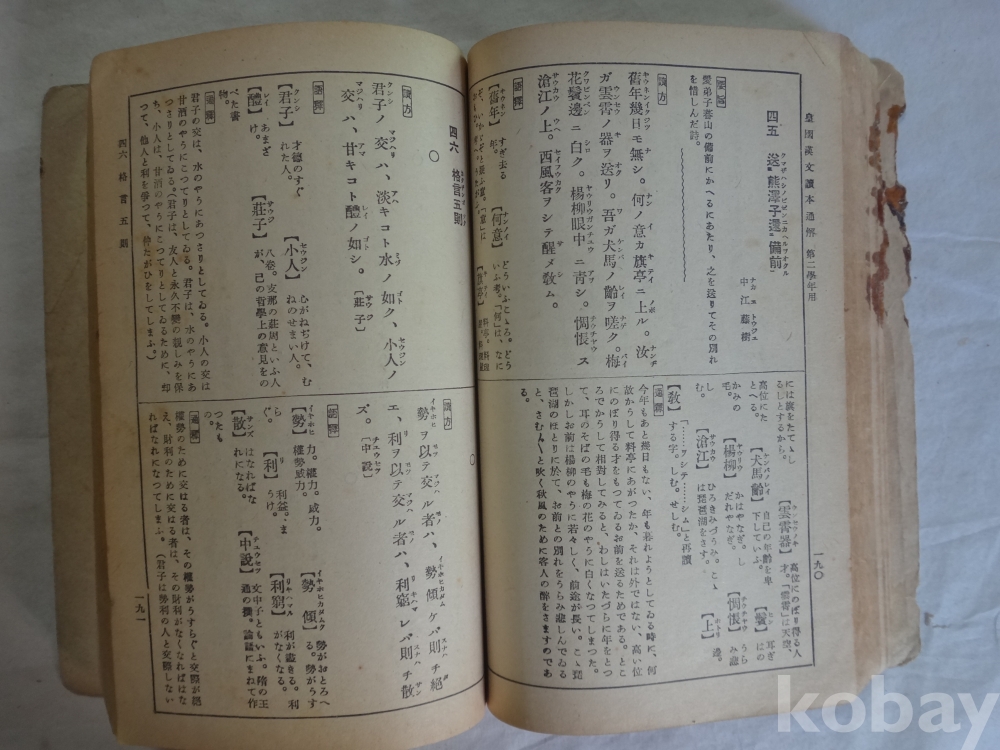 皇國漢文讀本通解 第二學年用
一九〇
四五 送熊澤子還備前
中江藤樹
要旨
愛弟子蕃山の備前にかへるにあたり、之を送りてその別れ
を惜しんだ詩。
讀方
舊年幾日モ無シ。何ノ意カ旗亭ニ上ル。汝
ガ雲霄ノ器ヲ送リ。吾ガ犬馬ノ齡ヲ嗟ク。梅
花鬢邊ニ白ク。楊柳眼中ニ靑シ。惆悵ス
滄江ノ上。西風客ヲシテ醒メ敎ム。
語釋
【舊年】すぎ去る年。
【何意】どういふこゝろ。どういふ考。「何」は、なに
には旗をたてゝし
るしとするから。
【雲霄器】高位にのぼり得る人才。「雲霄」は天空、
高位にたとへる。
【犬馬齡】自己の年齡を卑下していふ。
【鬢】耳ぎはの
かみの毛。
【楊柳】かはやなぎ。しだれやなぎ。
【惆悵】うらみ悲
しむ。
【滄江】ひろきみづうみ。こゝは琵琶湖をさす。
【上】邊。
【敎】「……ヲシテ……シム」と再讀する字。しむ。せしむ。
通釋
今年もあと幾日もない、年も暮れようとしてゐる時に、何
故かうして料亭にあがつたか、それは外ではない、高い位
にのぼり得る才をもつてゐるお前を送るためである。とこ
ろでかうして相對してみると、わしはいたづらに年をとつ
て、耳のそばの毛も梅の花のやうに白くなつてしまつた。
しかしお前は楊柳のやうに若々しく、前途が長い。こゝ琵
琶湖のほとりに於て、お前との別れをうらみ悲しんでゐる
と、さむ〴〵と吹く秋風のために客人の醉をさますのであ
る。
四六 格言五則
〇
讀方
君子ノ交ハ、淡キコト水ノ如ク、小人ノ
交ハ、甘キコト醴ノ如シ。〔莊子〕
語釋
【君子】才德のすぐれた人。
【小人】心がねぢけて、むねのせまい人。
【醴】あまざけ。
【莊子】八卷。支那の莊周といふ人が、己の哲學上の意見をの
べた書物。
通釋
君子の交は、水のやうにあつさりとしてゐる。小人の交は
甘酒のやうにこつてりとしてゐる。君子は、水のやうにあ
つさりとしてゐる。(君子は、友人と永久不變の親しみを保
ち、小人は、甘酒のやうにこつてりとしてゐるために、却
つて、他人と利を爭つて、仲たがひをしてしまふ。)
四六 格言五則
〇
讀方
勢ヲ以テ交ル者ハ、勢傾ケバ則チ絕
エ、利ヲ以テ交ル者ハ、利窮レバ則チ散
ズ。〔中說〕
語釋
【勢】力。權力。威力。權勢威力。
【勢傾】勢がおとろへる。勢がうす
らぐ。
【利】利益。まうけ。
【利窮】利が盡きる。利がなくなる。
【散】はなればなれになる。
【中說】文中子ともいふ。隋の王通の撰。論語にまねて作
つたもの。
通釋
權勢のために交はる者は、その權勢がうすらぐと交際が絕
え、財利のために交はる者は、その財利がなくなればはな
ればなれになつてしまふ。(君子は勢利の人と交際しない
一九一
kobay